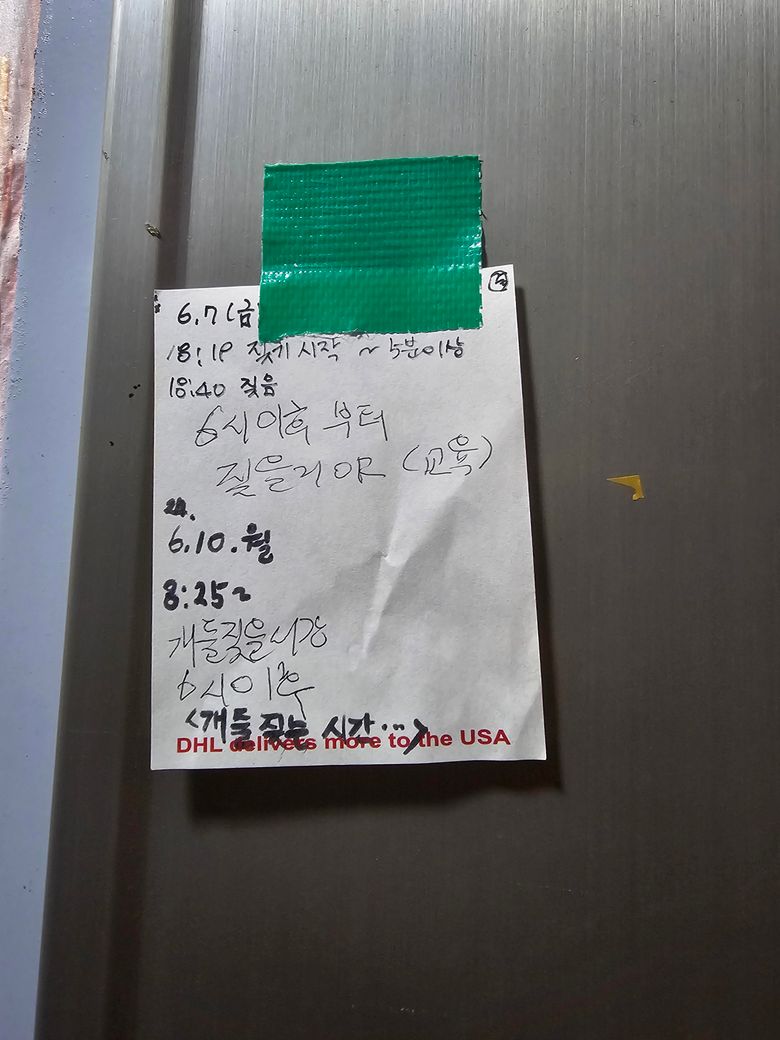 ⑤
6.7(금
18:19 짖기 시작 ~ 5분이상
18:40 짖음
6시이후 부터
짖을리 OR (교육)
6.10.월
8:25~
개들짖을시간
6시이후
<개들 짖는 시간...>
DHL delivers more to the USA